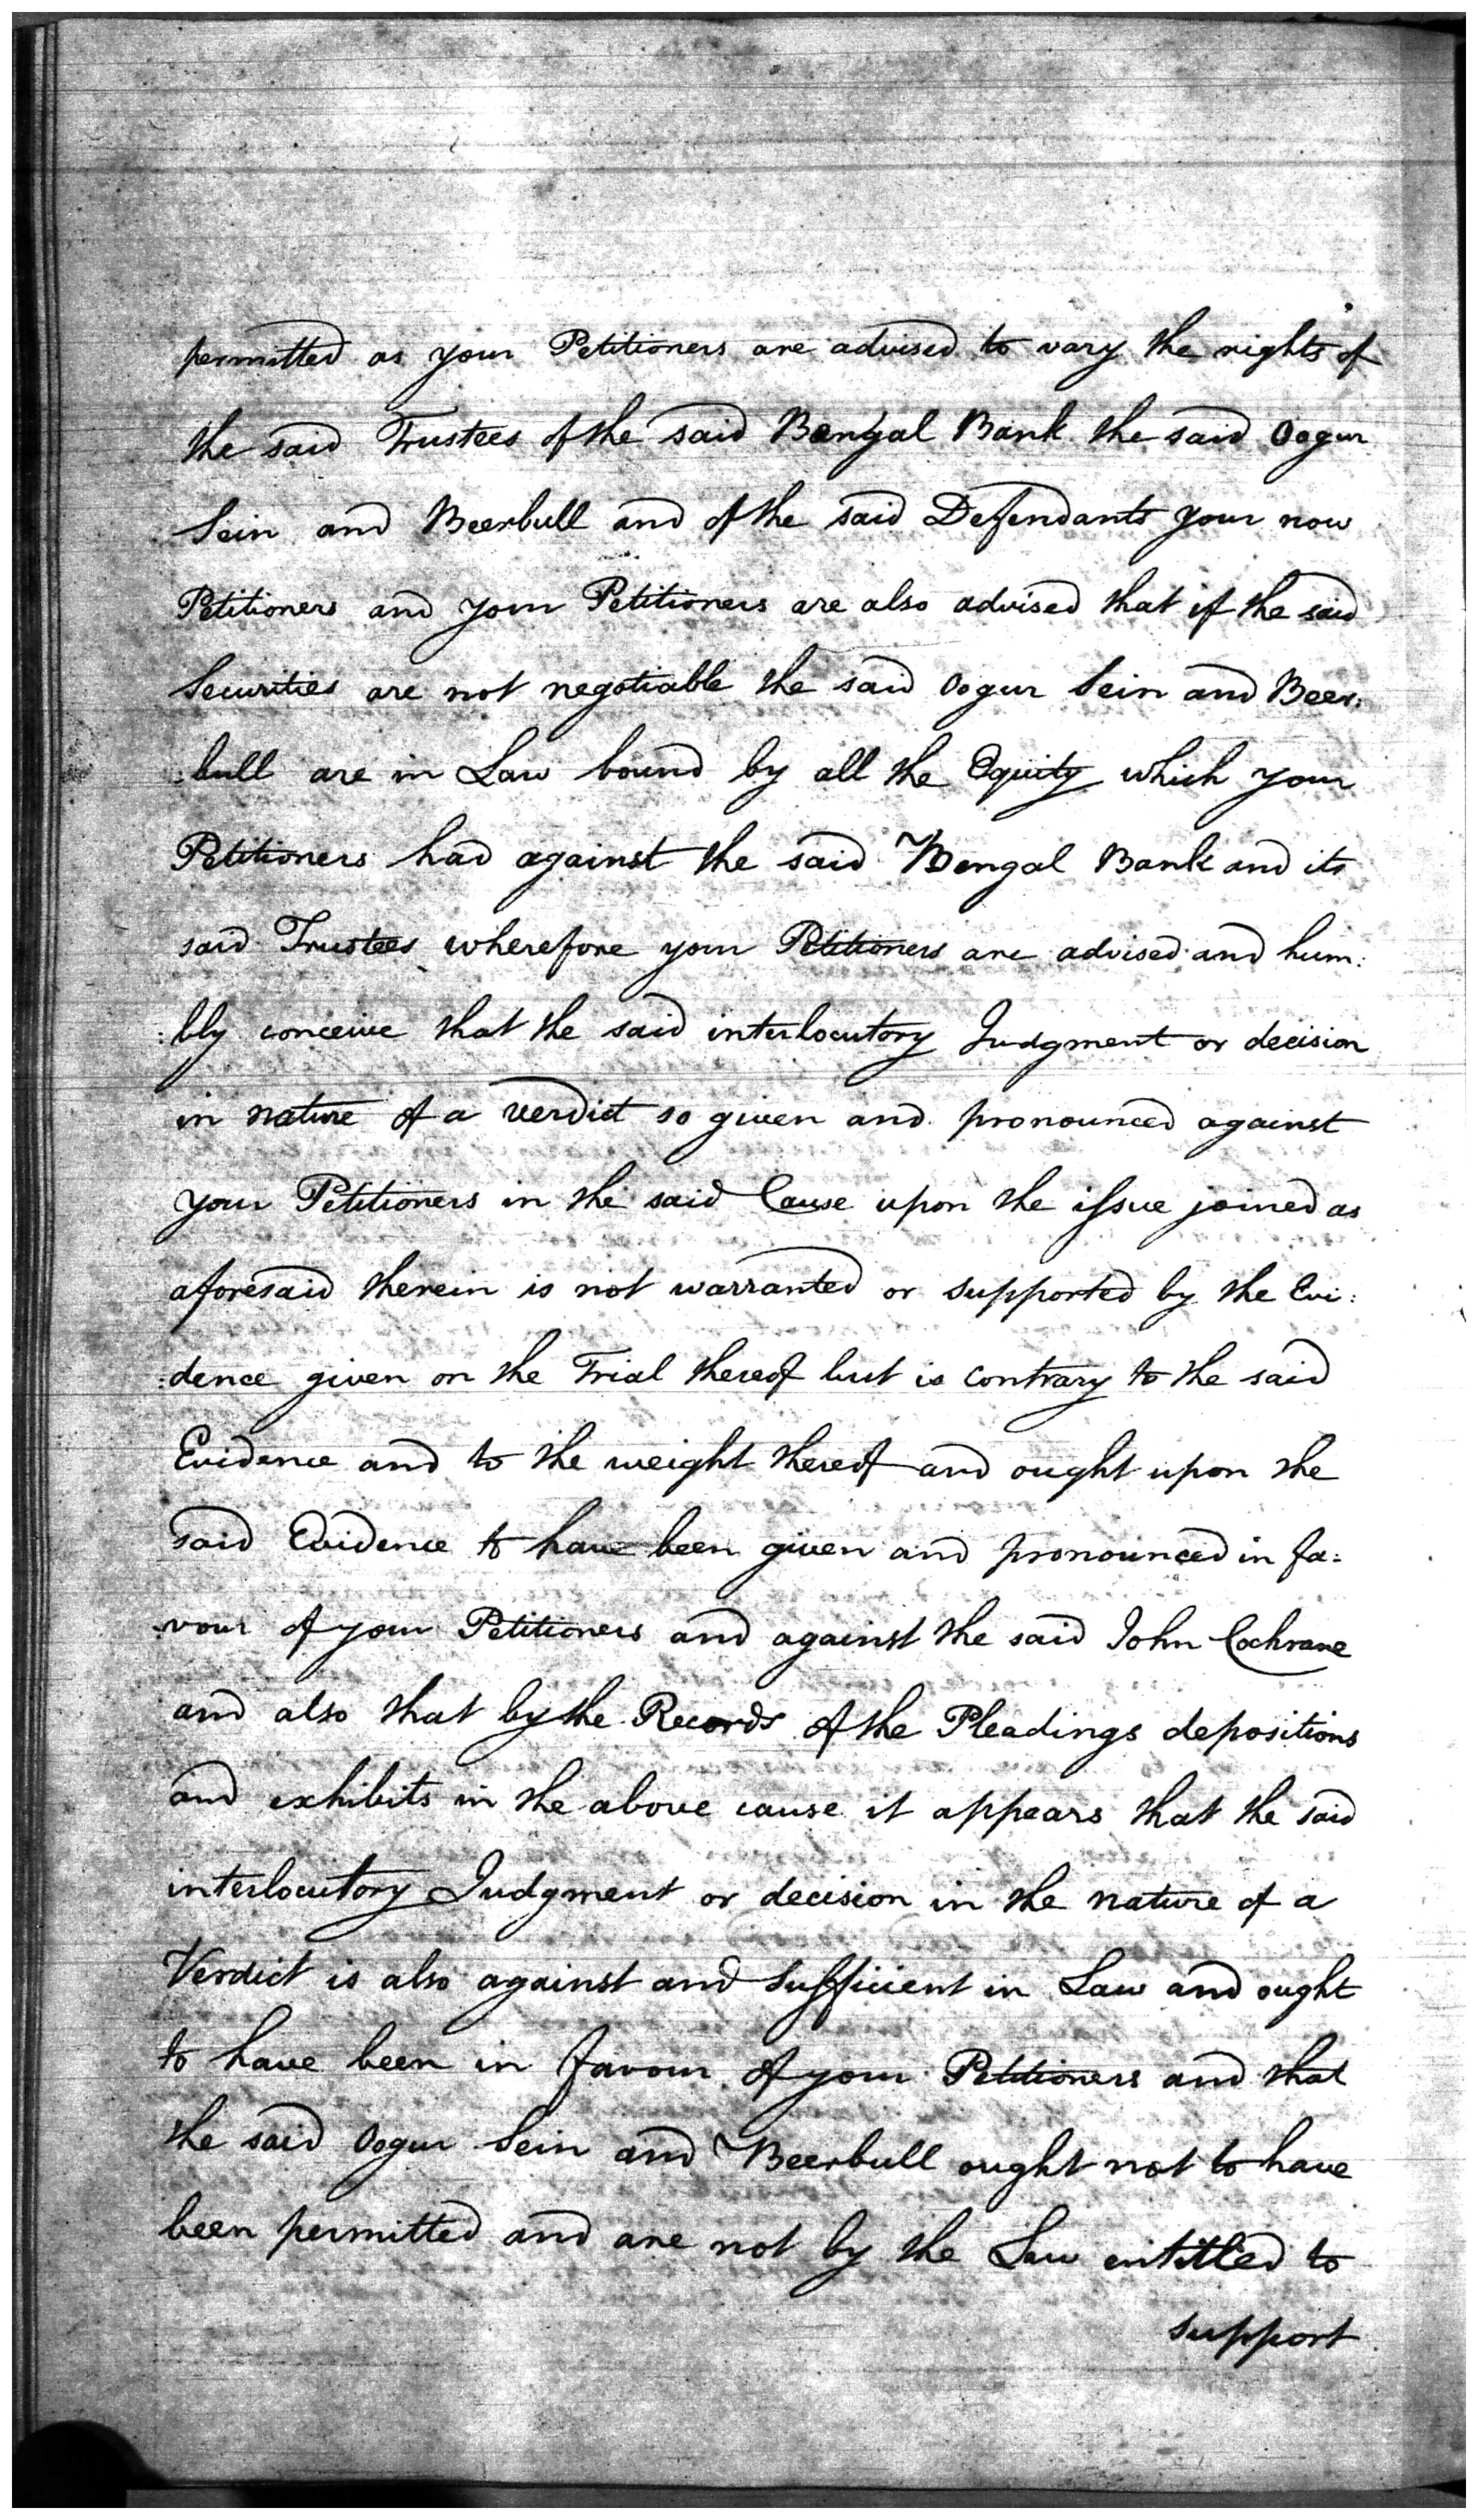 permitted as your Petitioners are advised to vary the rights of
the said Trustees of the said Bengal Bank the said Oogur
Sein and Beerbull and of the said Defendants your now
Petitioners and your Petitioners are also advised that if the said
Securities are not negotiable the said Oogur Sein and Beer:
:bull are in Law bound by all the Equity which your
Petitioners had against the said Bengal Bank and its
said Trustees wherefore your Petitioners are advised and hum:
:bly conceive that the said interlocutory Judgment or decision
in nature of a verdict so given and pronounced against
your Petitioners in the said Cause upon the issue joined as
aforesaid therein is not warranted or supported by the Evi:
:dence given on the Trial thereof but is contrary to the said
Evidence and to the weight thereof and ought upon the
said Evidence to have been given and pronounced in fa:
:vour of your Petitioners and against the said John Cochrane
and also that by the Records of the Pleadings depositions
and exhibits in the above cause it appears that the said
interlocutory Judgment or decision in the nature of a
Verdict is also against and sufficient in Law and ought
to have been in favour of your Petitioners and that
the said Oogur Sein and Beerbull ought not to have
been permitted and are not by the Law entitled to
support